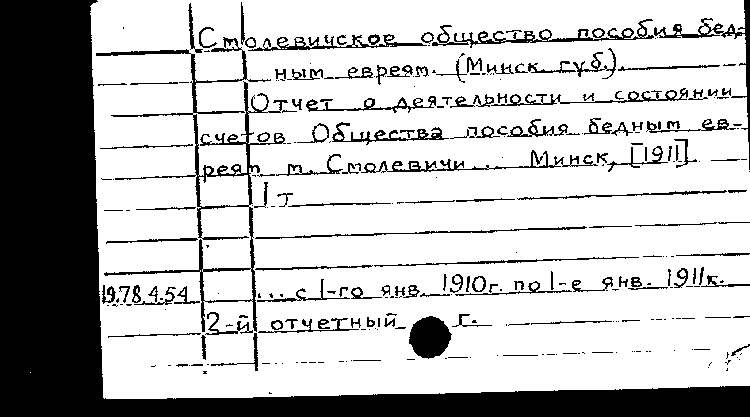 Смолевичское общество пособия бед-
ным евреям. (Минск. губ.).
Отчет о деятельности и состоянии
счетов Общества пособия бедным ев-
реям м. Смолевичи... Минск, [1911].
1 т
19.78.4.54 ... с 1-го янв. 1910г. по 1-е янв. 1911г.
2-й отчетный г.